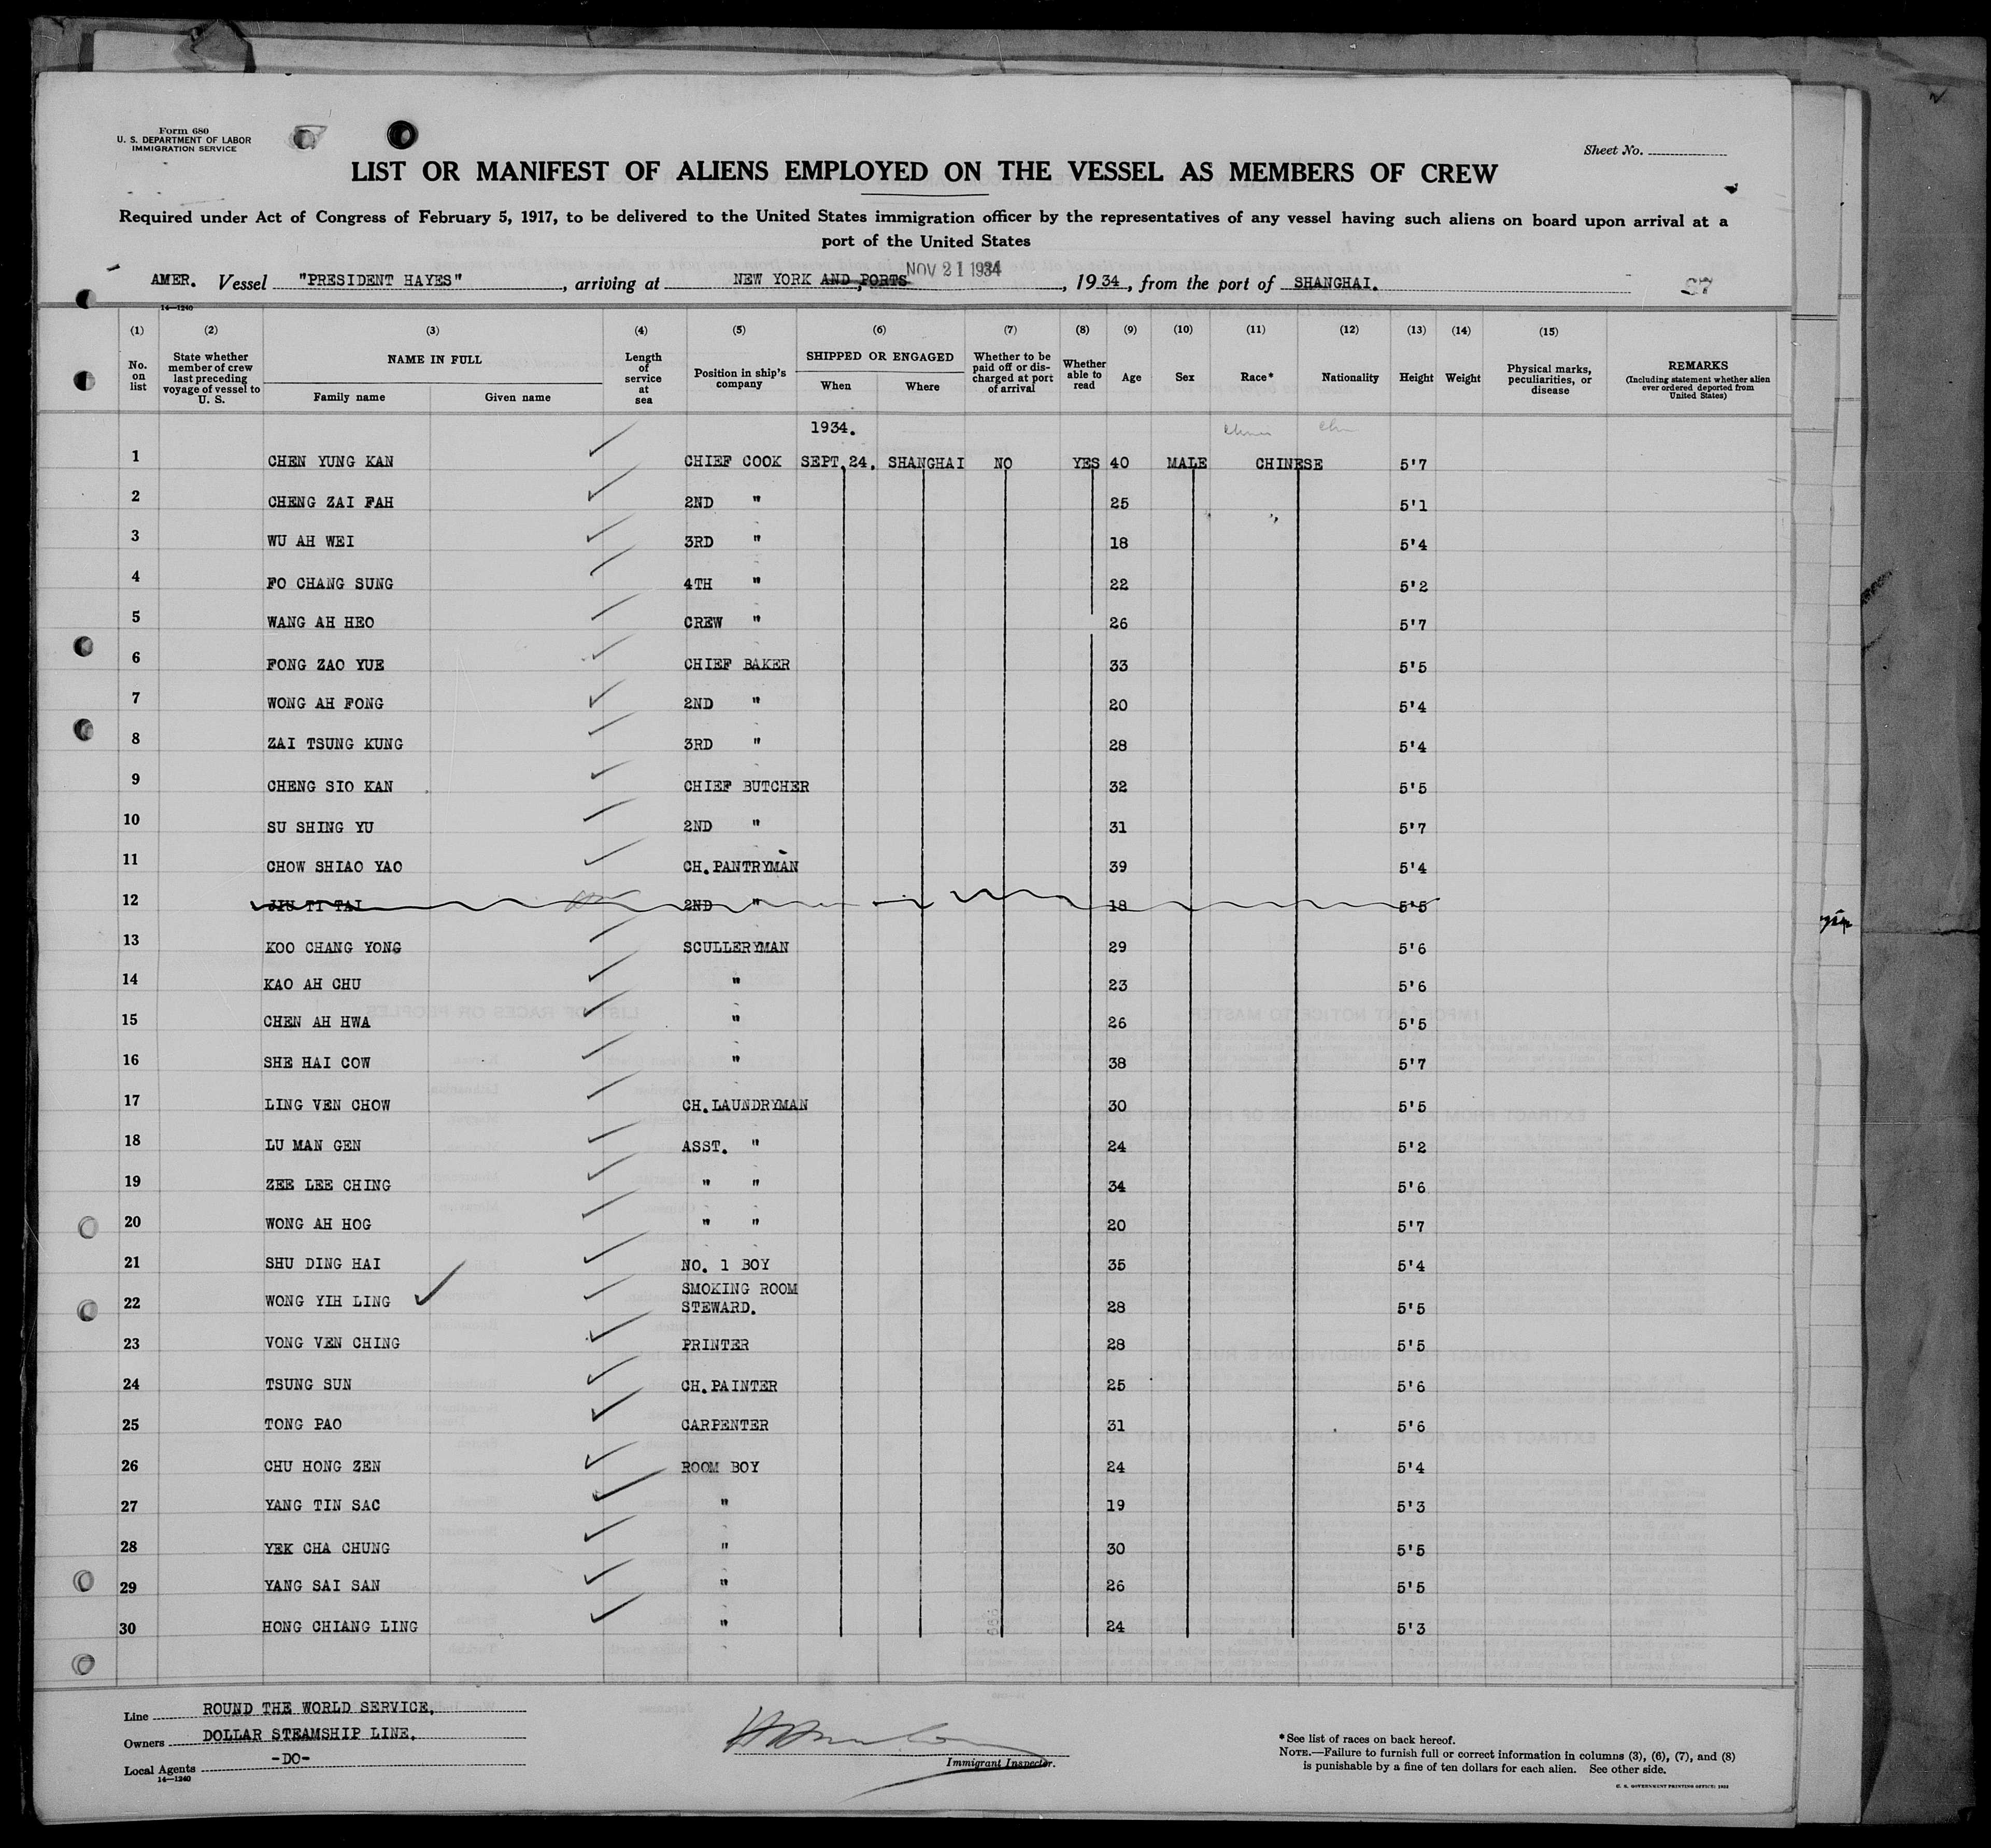 Form 680
U. S. DEPARTMENT OF LABOR
IMMIGRATION SERVICE
Sheet No.
LIST OR MANIFEST OF ALIENS EMPLOYED ON THE VESSEL AS MEMBERS OF CREW
Required under Act of Congress of February 5, 1917, to be delivered to the United States immigration officer by the representatives of any vessel having such aliens on board upon arrival at a
port of the United States
NOV 21 1934
AMER. Vessel "PRESIDENT HAYES", arriving at NEW YORK AND PORTS, 1934, from the port of SHANGHAI.
14—1240
(1) (2) (3) (4) (5) (6) (7) (8) (9) (10) (11) (12) (13) (14) (15)
No. on list
State whether member of crew last preceding voyage of vessel to U. S.
NAME IN FULL
Family name Given name
Length of service at sea
Position in ship's company
SHIPPED OR ENGAGED
When Where
Whether to be paid off or discharged at port of arrival
Whether able to read
Age Sex Race* Nationality Height Weight
Physical marks, peculiarities, or disease
REMARKS
(Including statement whether alien ever ordered deported from United States)
1934.
1 CHEN YUNG KAN CHIEF COOK SEPT.24. SHANGHAI NO YES 40 MALE CHINESE 5'7
2 CHENG ZAI FAH 2ND " 25 5'1
3 WU AH WEI 3RD " 18 5'4
4 FO CHANG SUNG 4TH " 22 5'2
5 WANG AH HEO CREW " 26 5'7
6 FONG ZAO YUE CHIEF BAKER 33 5'5
7 WONG AH FONG 2ND " 20 5'4
8 ZAI TSUNG KUNG 3RD " 28 5'4
9 CHENG SIO KAN CHIEF BUTCHER 32 5'5
10 SU SHING YU 2ND " 31 5'7
11 CHOW SHIAO YAO CH.PANTRYMAN 39 5'4
12 JIU TI TAI 2ND " 18 5'5
13 KOO CHANG YONG SCULLERYMAN 29 5'6
14 KAO AH CHU " 23 5'6
15 CHEN AH HWA " 26 5'5
16 SHE HAI COW " 38 5'7
17 LING VEN CHOW CH.LAUNDRYMAN 30 5'5
18 LU MAN GEN ASST. " 24 5'2
19 ZEE LEE CHING " " 34 5'6
20 WONG AH HOG " " 20 5'7
21 SHU DING HAI NO. 1 BOY 35 5'4
22 WONG YIH LING SMOKING ROOM STEWARD. 28 5'5
23 VONG VEN CHING PRINTER 28 5'5
24 TSUNG SUN CH.PAINTER 25 5'6
25 TONG PAO CARPENTER 31 5'6
26 CHU HONG ZEN ROOM BOY 24 5'4
27 YANG TIN SAC " 19 5'3
28 YEK CHA CHUNG " 30 5'5
29 YANG SAI SAN " 26 5'5
30 HONG CHIANG LING " 24 5'3
Line ROUND THE WORLD SERVICE.
Owners DOLLAR STEAMSHIP LINE.
Local Agents -DO-
14—1240
Immigrant Inspector.
*See list of races on back hereof.
NOTE.—Failure to furnish full or correct information in columns (3), (6), (7), and (8)
is punishable by a fine of ten dollars for each alien. See other side.